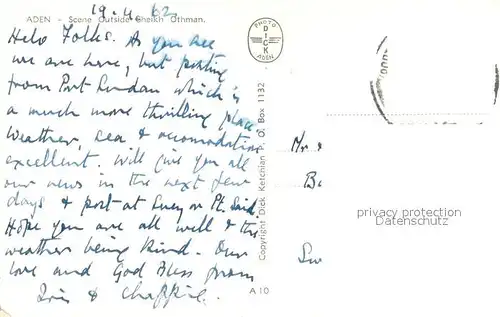 19.4.62
ADEN - Scene Outside Cheikh Othman.
Helo Folks. As you see
we are here, but posting
from Port Sudan which is
a much more thrilling place
Weather, sea & accomodation
excellent. Will give you all
our news in the next few
days & post at Suez or Pt. Said
Hope you are all well & the
weather being kind. Our
love and God Bless from
& 
PHOTO
DICK
ADEN
Copyright Dick Ketchian P. O. Box 1132
A 10
Mr &
privacy protection
Datenschutz